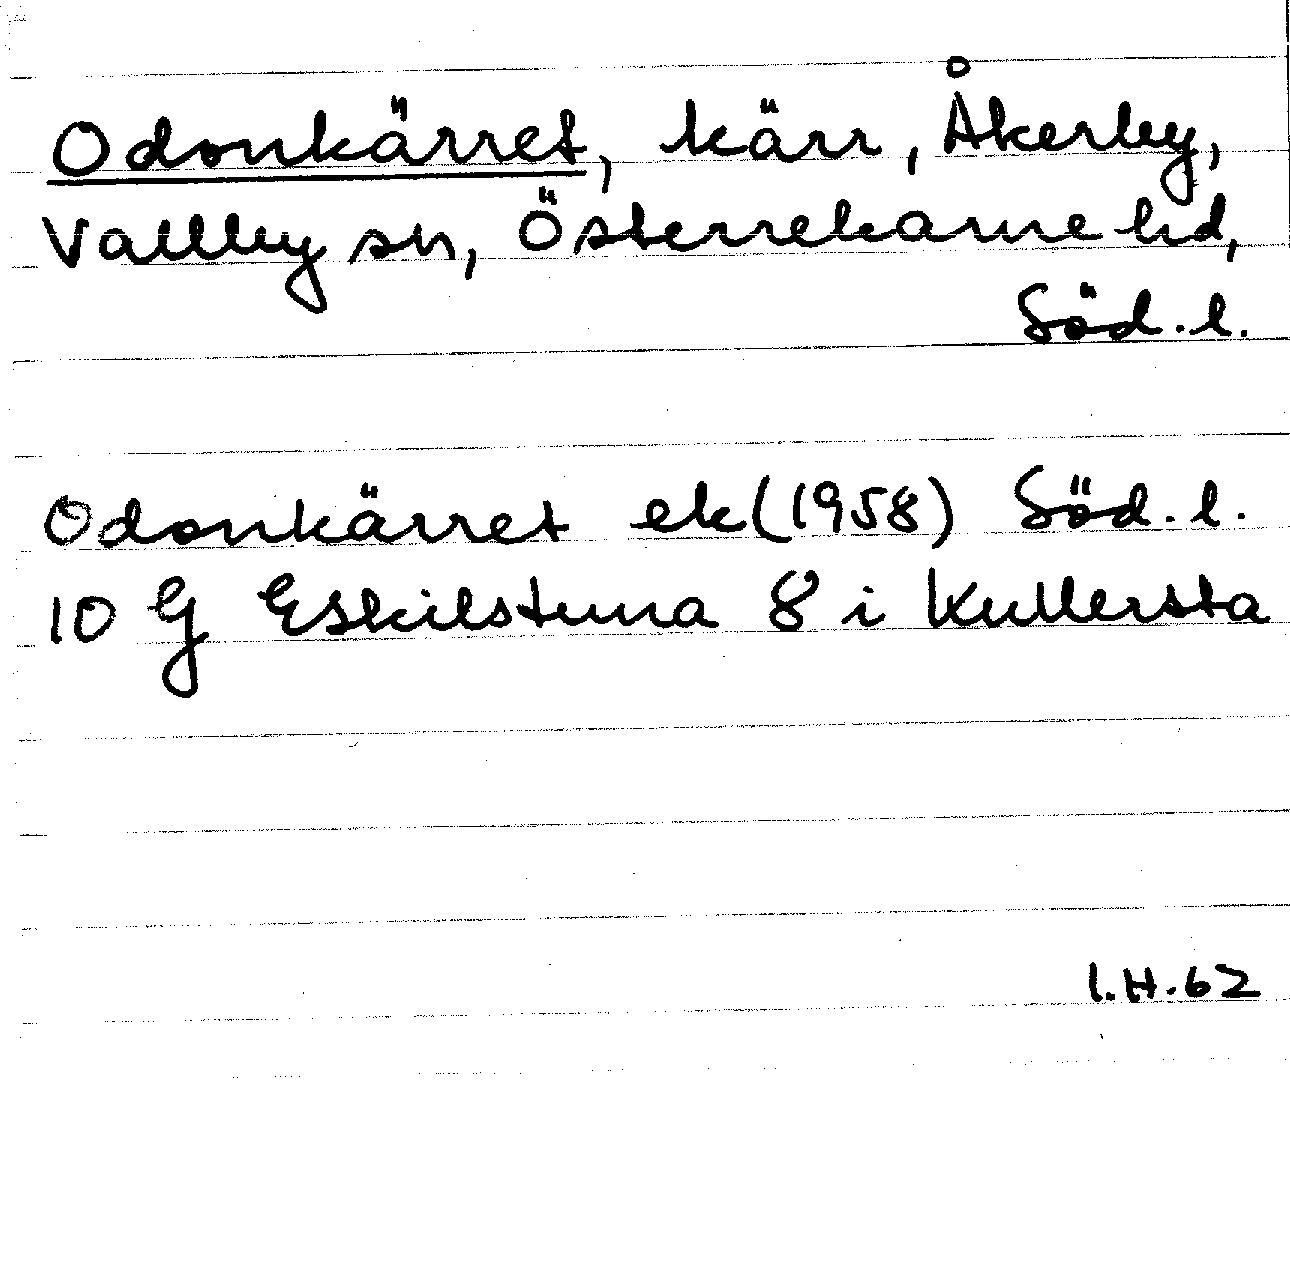 Odonkärret, kärr, Åkerby,
Vallby sn, Österrekarne hd,
Söd. l.
Odonkärret ek (1958) Söd. l.
10 G Eskilstuna 8 i Kullersta
I.H.62